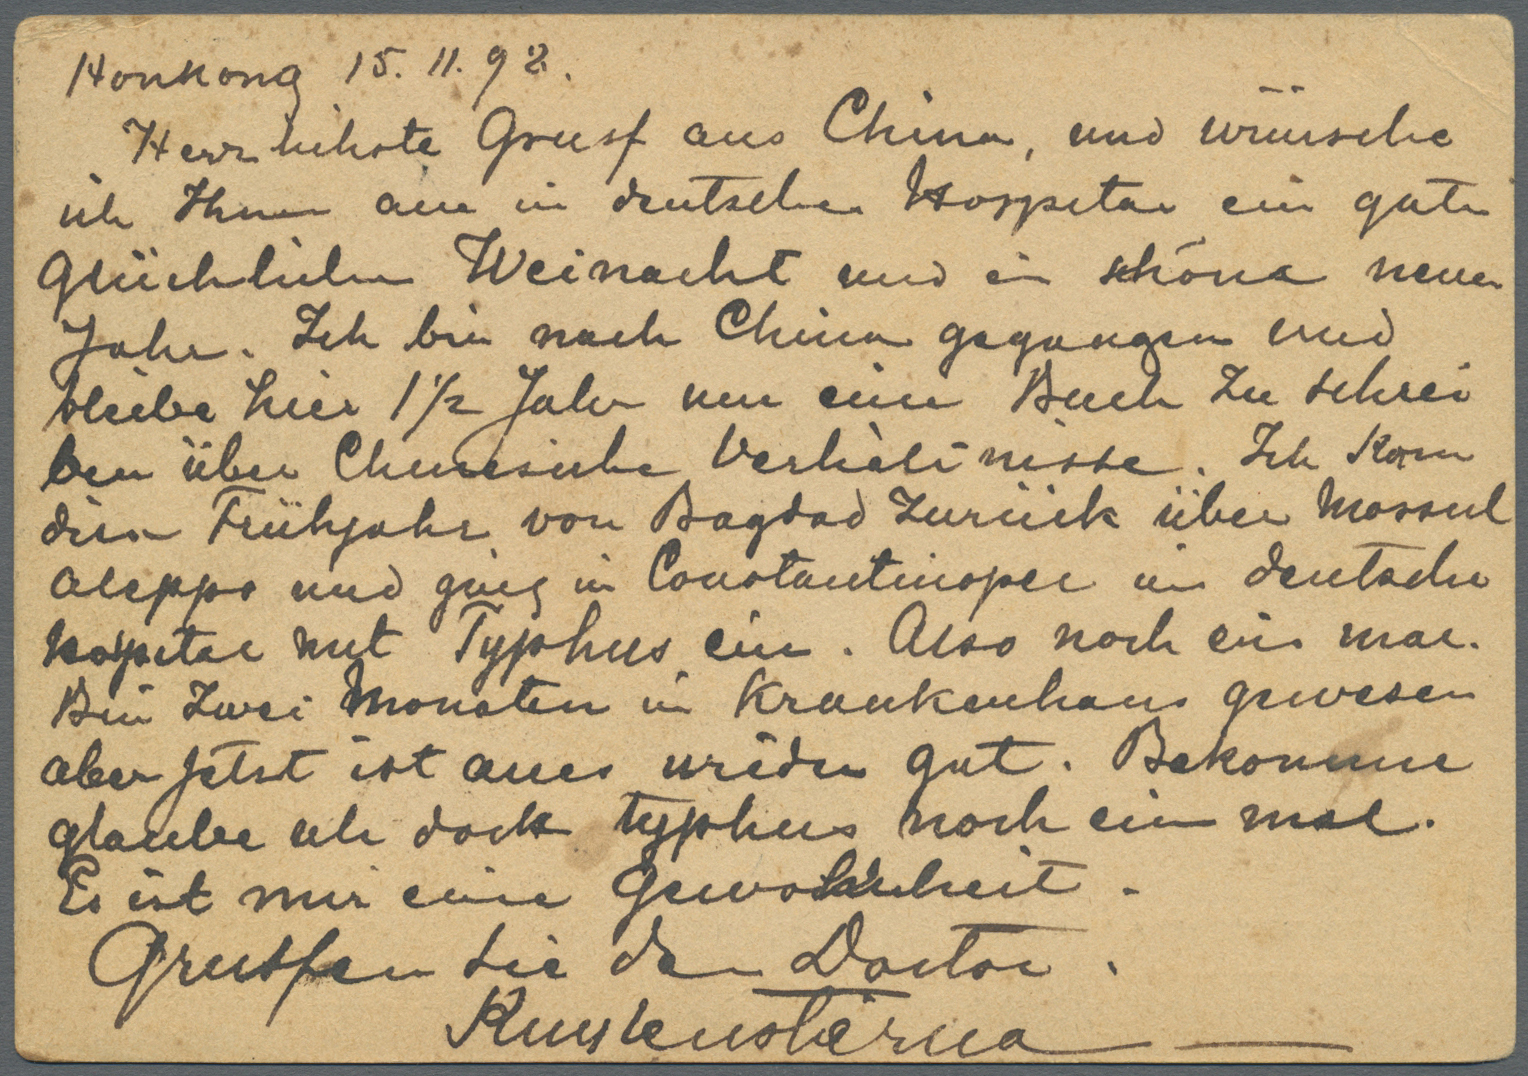 Honkong 15. 11. 92.
Herrlichste Gruss aus China, und wünsche
ich Ihnen alle in deutschen Hospital ein guten
Glücklichen Weinacht und ein schöna neuen
Jahr. Ich bin nach China gegangen und
bleibe hier 1 1/2 Jahr um eine Buch zu schrei
ben über Chinesische Verhältnisse. Ich kam
diesn Frühjahr von Bagdad zurück über Mossul
Aleppo und ging in Constantinopel in deutsche
hospital mit Typhus ein. Also noch ein mal.
Bin zwei Monaten in Krankenhaus gewesen
aber jetst ist alles wieder gut. Bekomme
glaube ich doch typhus noch ein mal.
Es ist mir eine Gewohnheit.
Grussen sie den Doctor.